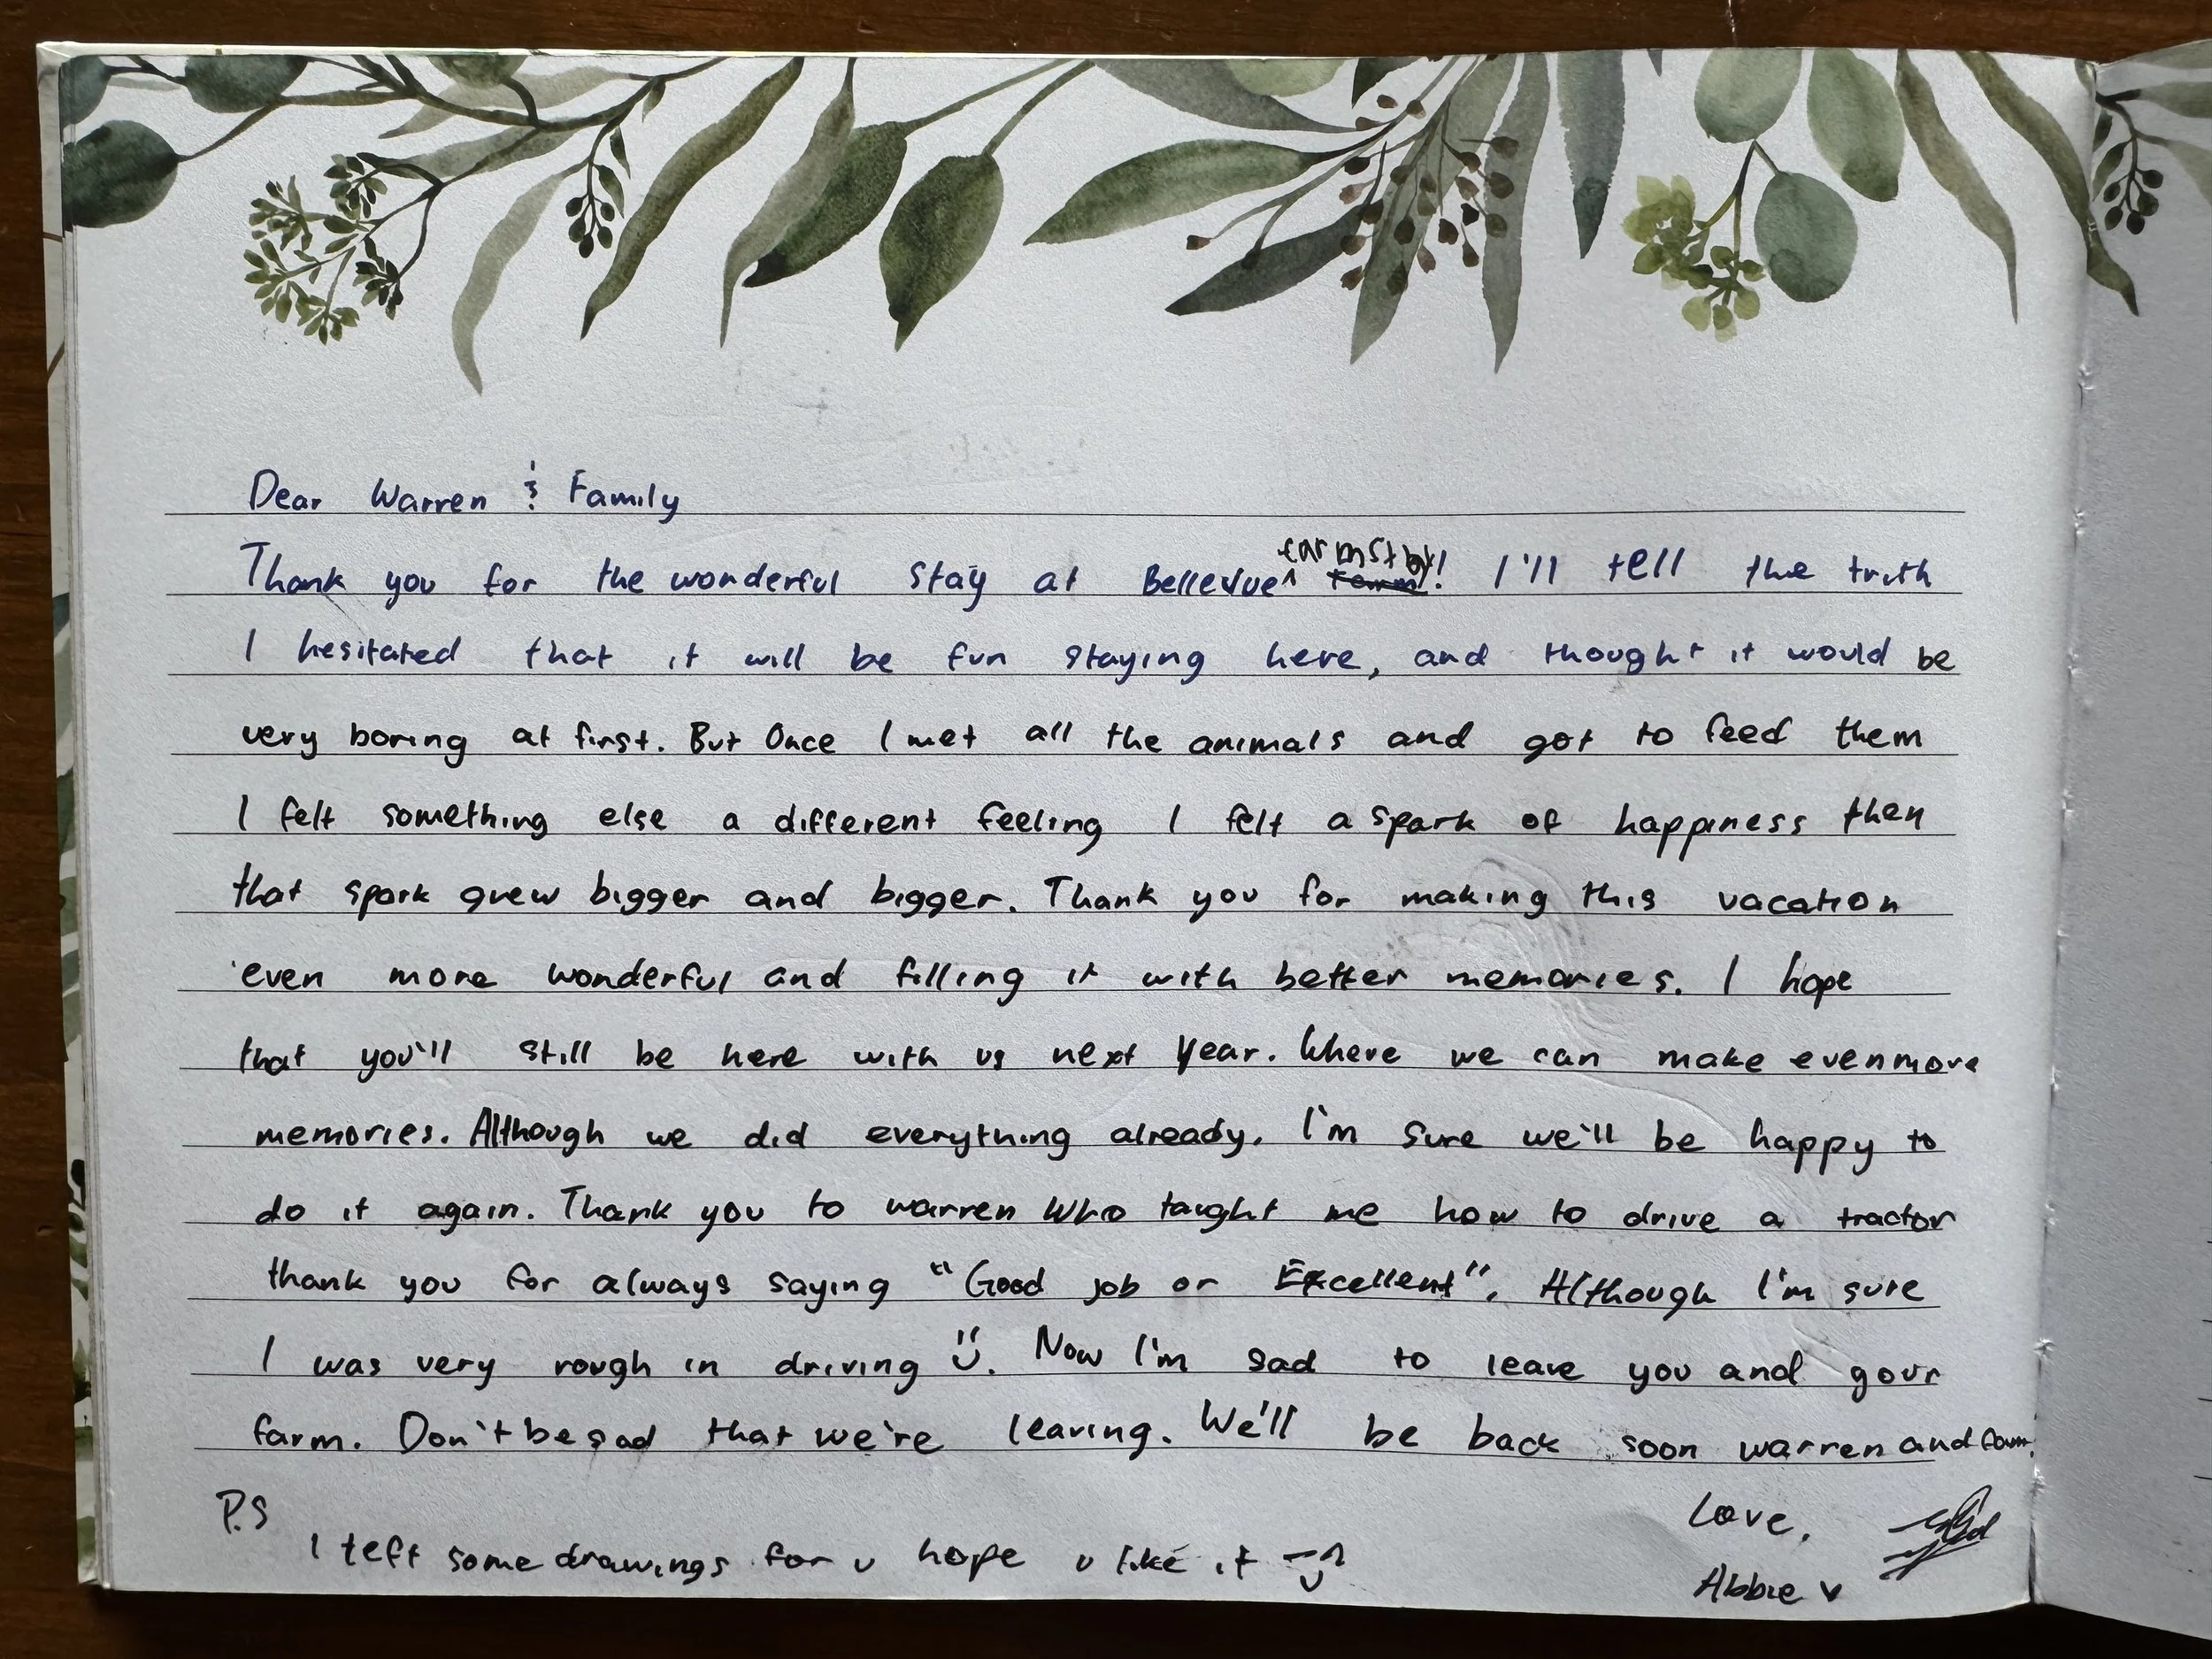 Dear Warren & Family
Thank you for the wonderful stay at Bellevue farmstay! I'll tell the truth
I hesitated that it will be fun staying here, and thought it would be
very boring at first. But Once I met all the animals and got to feed them
I felt something else a different feeling I felt a spark of happiness then
that spark grew bigger and bigger. Thank you for making this vacation
even more wonderful and filling it with better memories. I hope
that you'll still be here with us next Year. Where we can make even more
memories. Although we did everything already. I'm sure we'll be happy to
do it again. Thank you to warren Who taught me how to drive a tractor
thank you for always saying "Good job or Excellent". Although I'm sure
I was very rough in driving ü. Now I'm sad to leave you and your
farm. Don't be sad that we're leaving. We'll be back soon warren and fam.
P.S
I left some drawings for u hope u like it
Love,
Abbie v